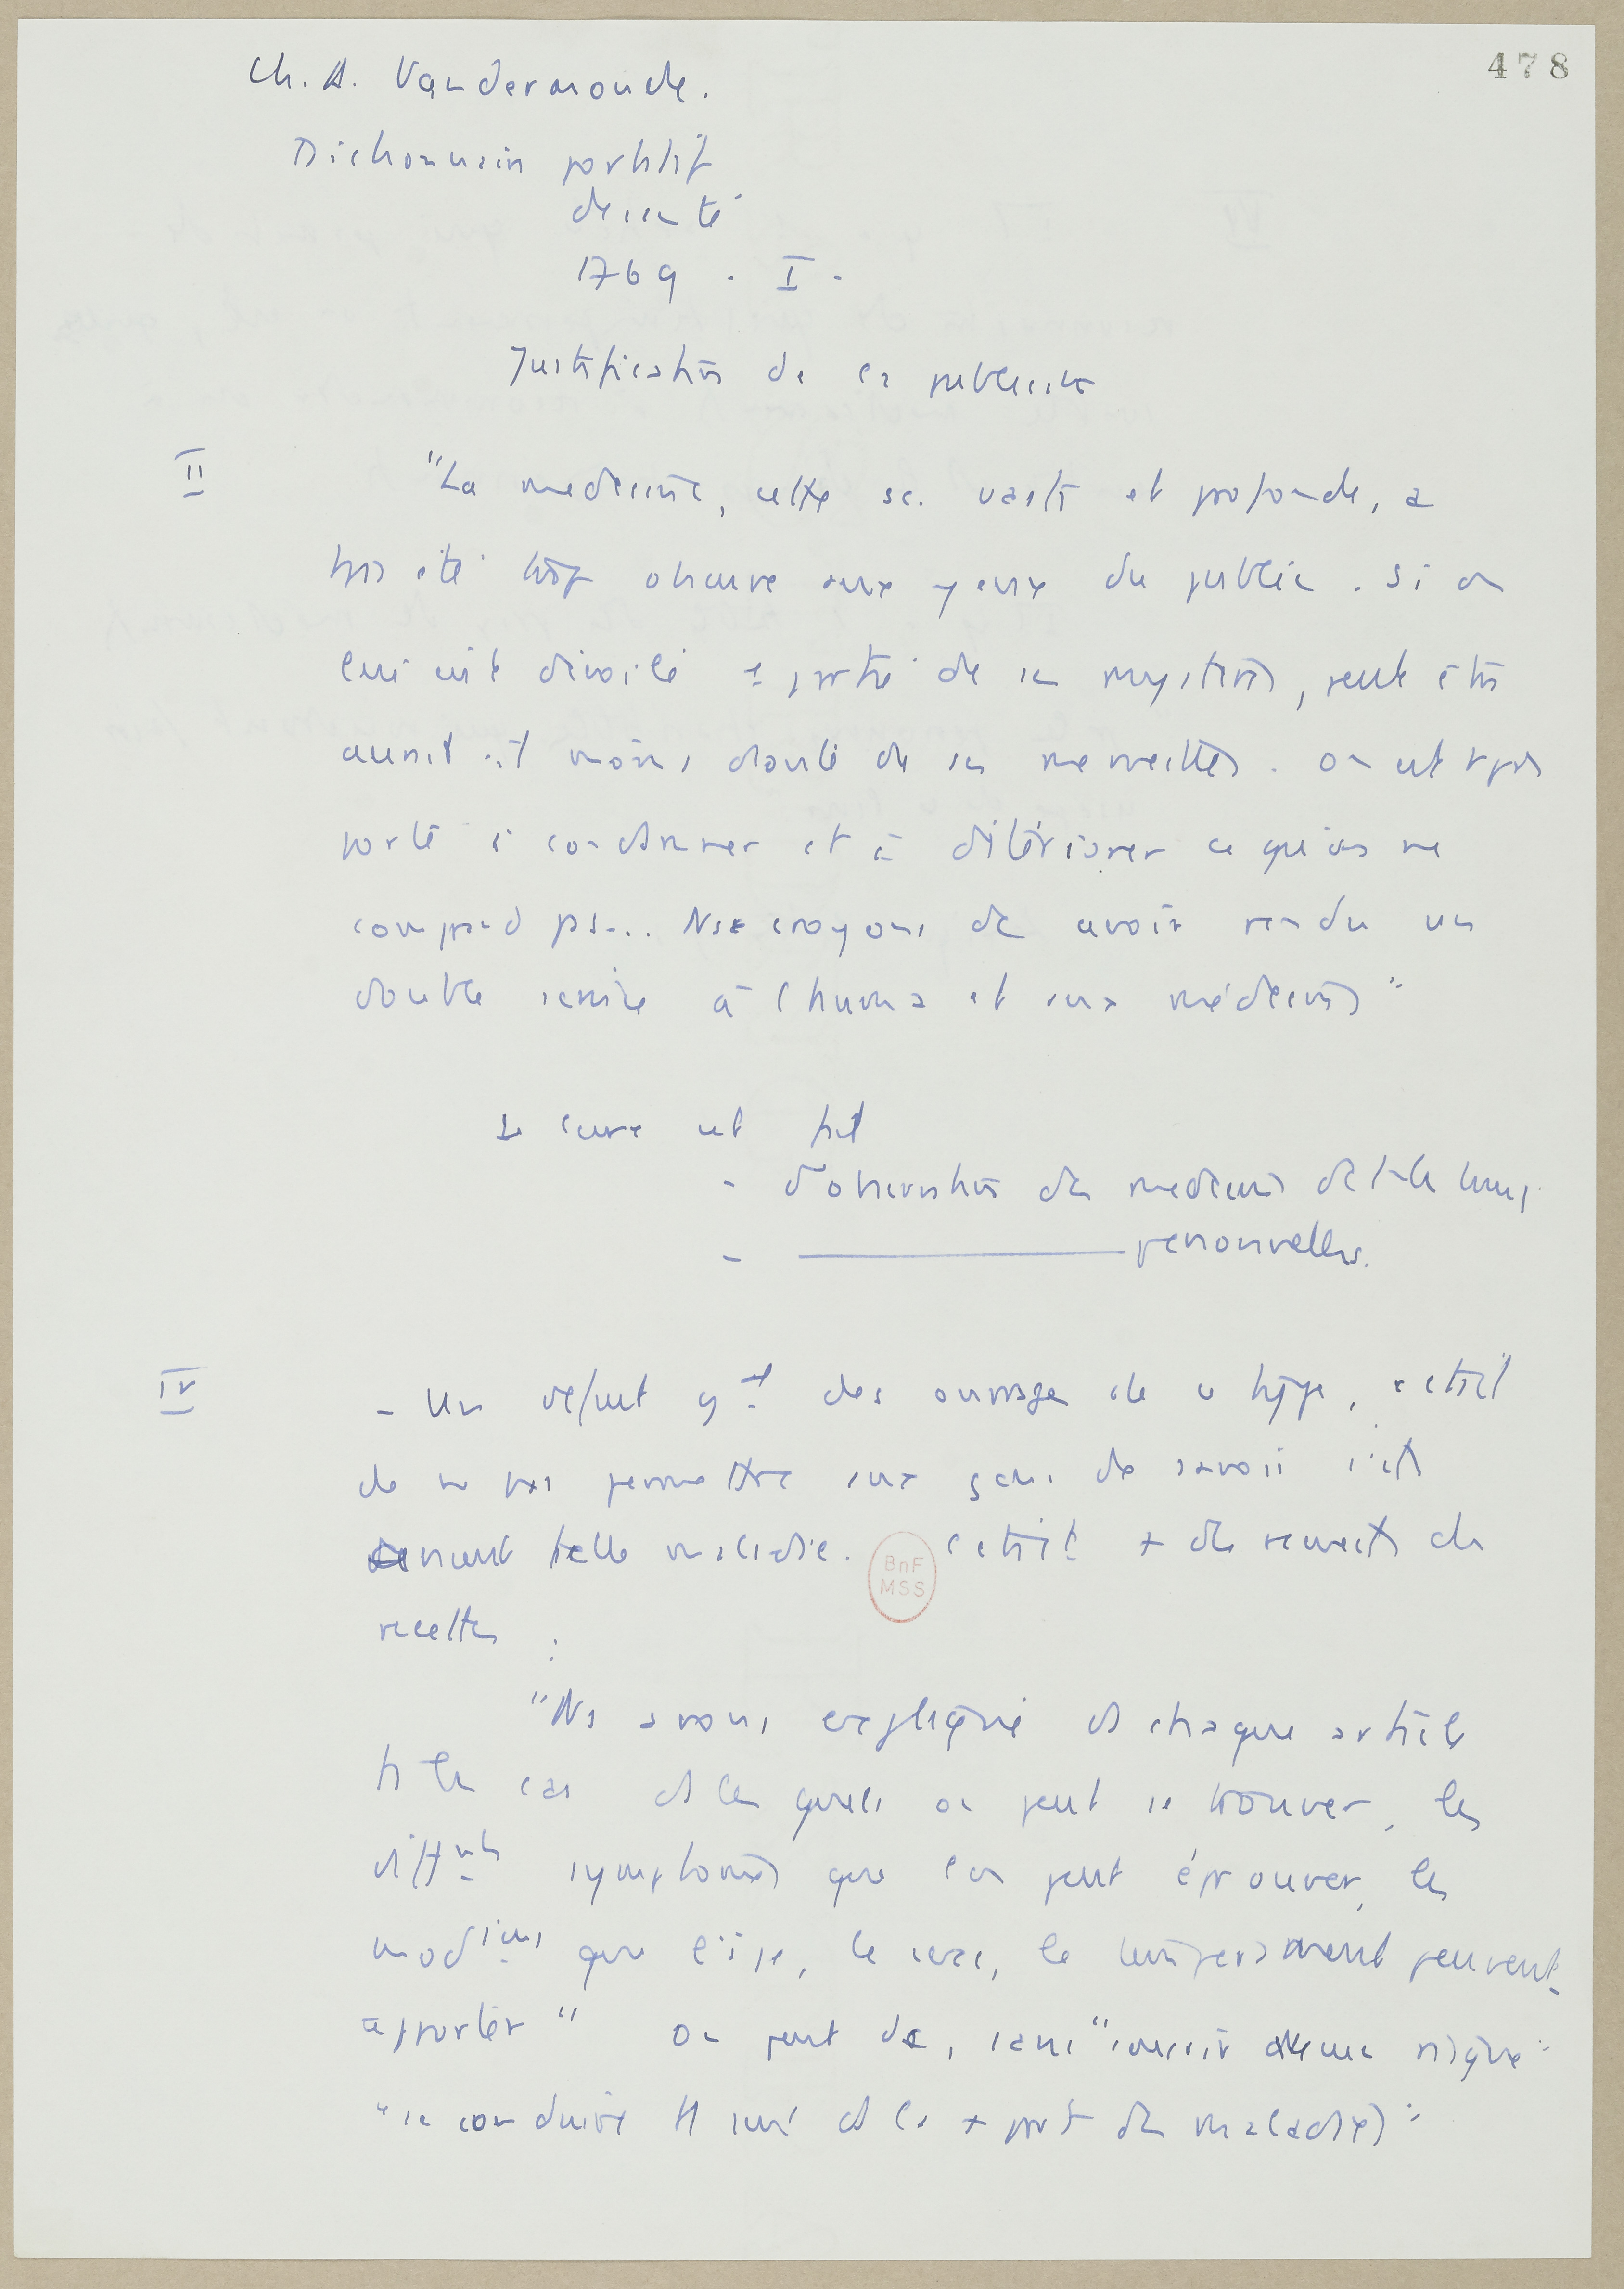 478
Ch. A. Vandermonde.
Dictionnaire portatif
de santé
1769 . I .
Justification de la publicité
II "La medecine, cette sc. vaste et profonde, a
été trop obscure aux yeux du public. Si on
lui eut dévoilé partie de ses mystères, peut être
aurait-il moins douté de ses merveilles. On est
porté à condamner et à détériorer ce qu'on ne
comprend pas... Ns croyons dc avoir rendu un
double service à l'huma et aux médecins"
Le livre est fait
- d'observations des medecins de
- ——— personnelles.
IV - Un défaut gal des ouvrages de ce type, c'était
de ne pas permettre aux gens de savoir s'ils
avaient telle maladie. C'était + des recueils de
recettes :
BnF
MSS
"Ns avons expliqué ds chaque article
ts les cas ds lesquels on peut se trouver, les
diffnts symptomes que l'on peut éprouver, les
modions que l'âge, le sexe, le temperament peuvent
apporter" On peut dc, sans "courir aucun risque"
"se conduire seul ds la + part des maladies"